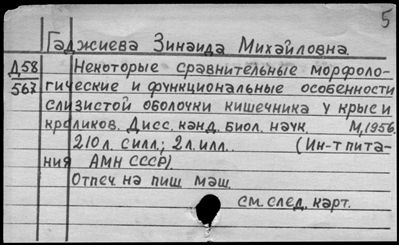 5
Гаджиева Зинаида Михайловна.
Д58 Некоторые сравнительные морфоло-
567 гические и функциональные особенности
слизистой оболочки кишечника у крыс и
кроликов. Дисс. канд. биол. наук. М, 1956.
210 л. с илл.; 2 л. илл.. (Ин-т пита-
ния АМН СССР).
Отпеч на пиш маш.
см. след. карт.